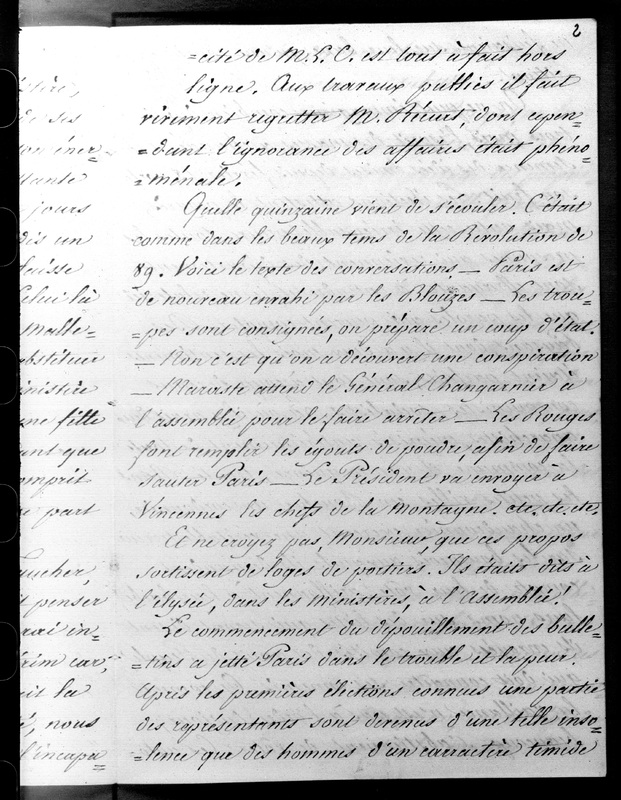 2
=cité de M. L. C. est tout à fait hors
ligne. Aux travaux publics il fait
vivement regretter M. dont cepen=
=dant l'ignorance des affaires était phéno=
=ménale.
Quelle quinzaine vient de s'écouler. C'était
comme dans les beaux tems de la Révolution de
89. Voici le texte des conversations — Paris est
de nouveau envahi par les Blouzes — Les trou=
=pes sont consignées, on prépare un coup d'état.
— Non c'est qu'on a découvert une conspiration
— Marraste attend le Général Changarnier à
l'assemblée pour le faire arrêter — Les Rouges
font remplir les égouts de poudre afin de faire
sauter Paris — Le Président va envoyer à
Vincennes les chefs de la montagne. etc. etc. etc.
Et ne croyez pas, Monsieur, que ces propos
sortissent de loges de portiers. Ils étaits dits à
l'élysée, dans les ministères, à l'assemblée!
Le commencement du dépouillement des bulle=
=tins a jetté Paris dans le trouble et la peur.
Après les premières élections connues une partie
des représentants sont devenus d'une telle inso=
=lence que des hommes d'un carractère timide
de ses
jours
dis un
Celui là
Malle=
ne fille
ant que
part
penser
in=
car,
it la
nous
l'incapa=